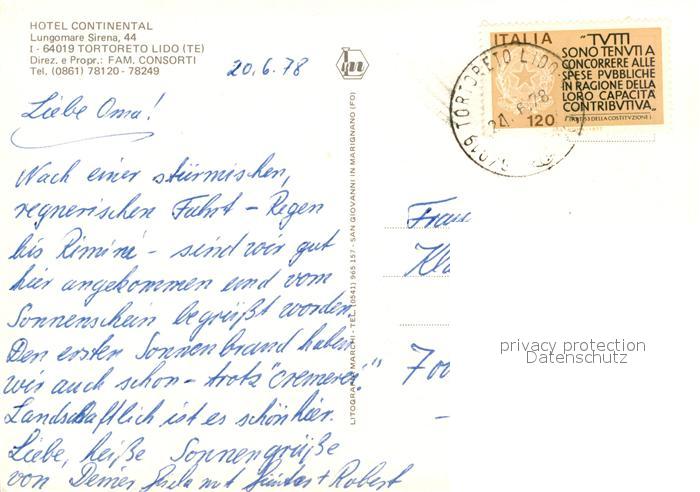 HOTEL CONTINENTAL
Lungomare Sirena, 44
I - 64019 TORTORETO LIDO (TE)
Direz. e Propr.: FAM. CONSORTI
Tel. (0861) 78120 - 78249
20.6.78
Liebe Oma!
Nach einer stürmischen,
regnerischen Fahrt - Regen
bis Rimini - sind wir gut
hier angekommen und vom
Sonnenschein begrüßt worden.
Den ersten Sonnenbrand haben
wir auch schon - trotz "cremerei"
Landschaftlich ist es schön hier.
Liebe, heiße Sonnengrüße
von Deiner Gisela mit Günter + Robert
LITOGRAFIA MARCHI - TEL. (0541) 965 157 - SAN GIOVANNI IN MARIGNANO (FO)
ITALIA
120
"TVTTI
SONO TENVTI A
CONCORRERE ALLE
SPESE PVBBLICHE
IN RAGIONE DELLA
LORO CAPACITÀ
CONTRIBVTIVA„
(ART. 53 DELLA COSTITVZIONE)
64019 TORTORETO LIDO
6.78
Frau
700
privacy protection
Datenschutz